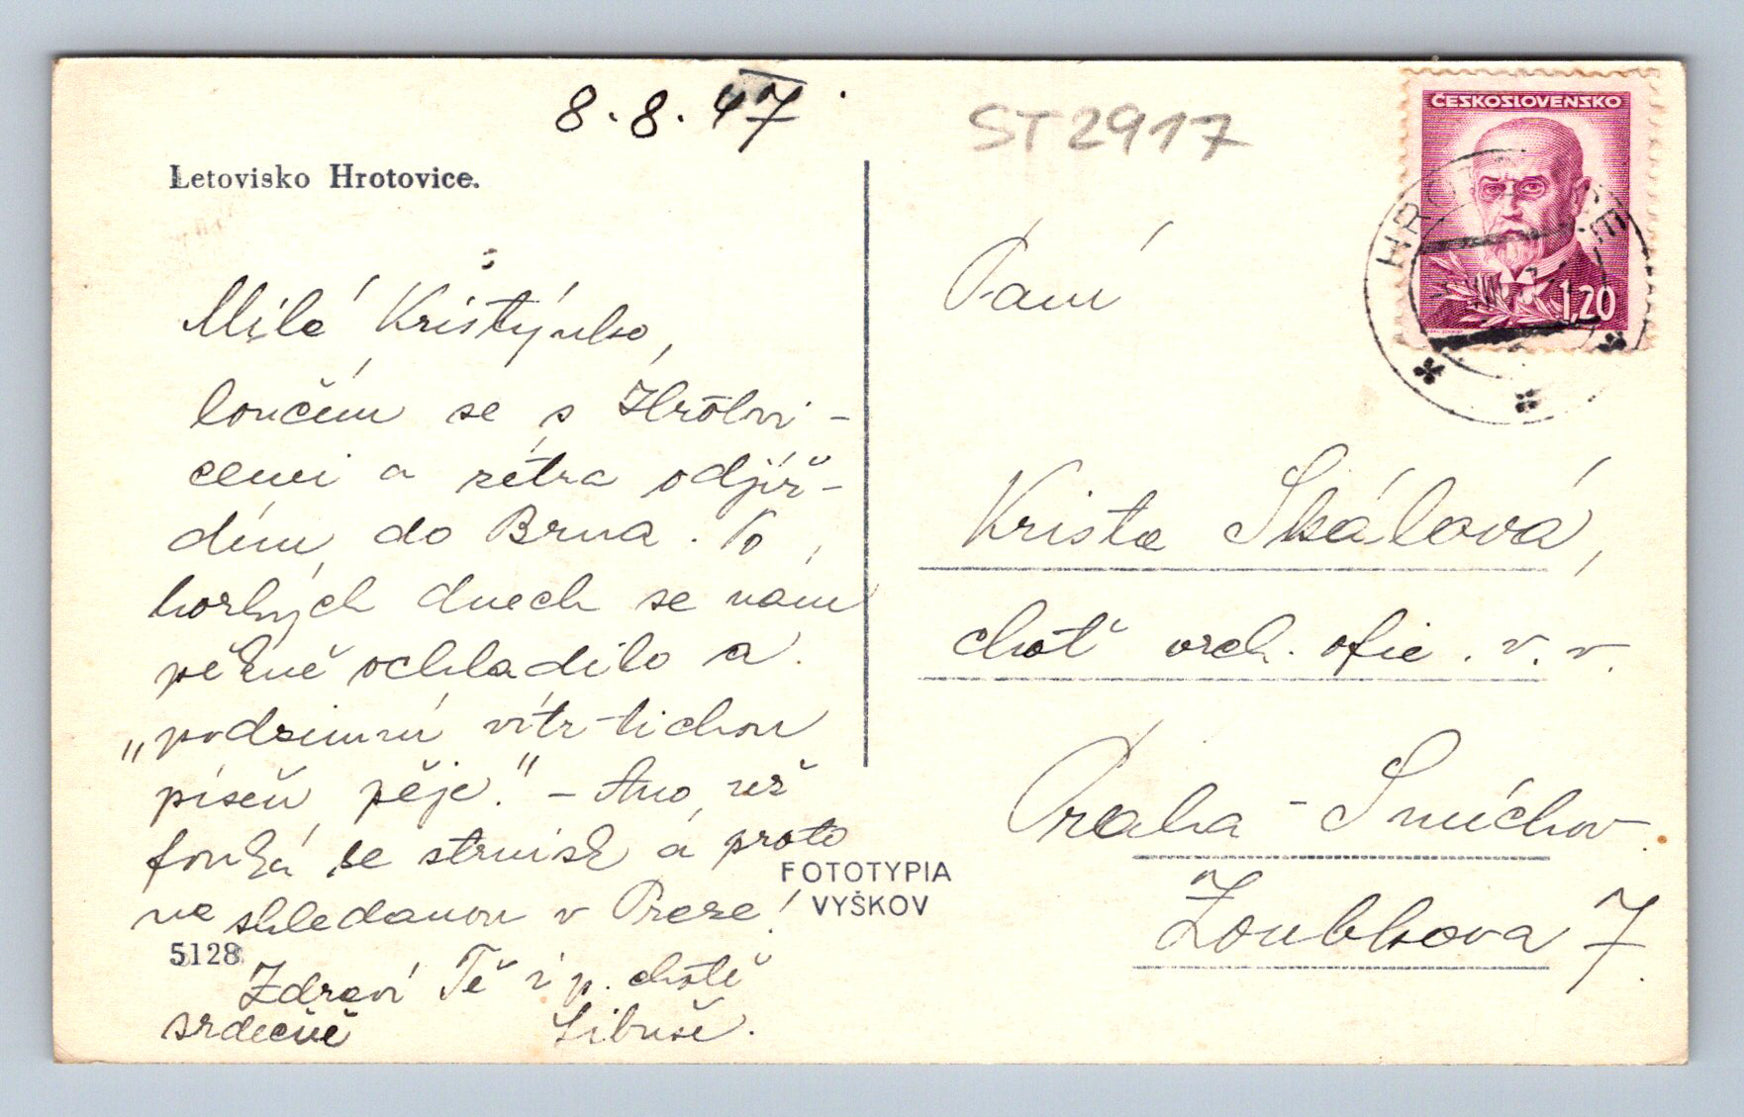 8.8.47.
ST2917
ČESKOSLOVENSKO
1,20
HRO
Letovisko Hrotovice.
Milá Kristýnko,
loučím se s Hrotovi-
cemi a zítra odjíž-
dím do Brna. Po
horkých dnech se nám
pěkně ochladilo a
„podzimní vítr tichou
píseň pěje." – Ano, už
fouká ze strnisk a proto
na shledanou v Praze!
Zdraví Tě i p. chotě
srdečně Libuše.
5128
FOTOTYPIA
VYŠKOV
Paní
Krista Skálová,
choť vrch. ofic. v. v.
Praha – Smíchov.
Zoubkova 7.